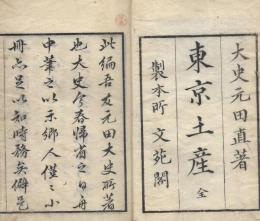 大史元田直著
東京土産 全
製本所 文苑閣
此編吾友元田大史所著
也大史今春帰省之日舟
中筆之以示郷人僅々小
冊亦足以知時務矣僻邑